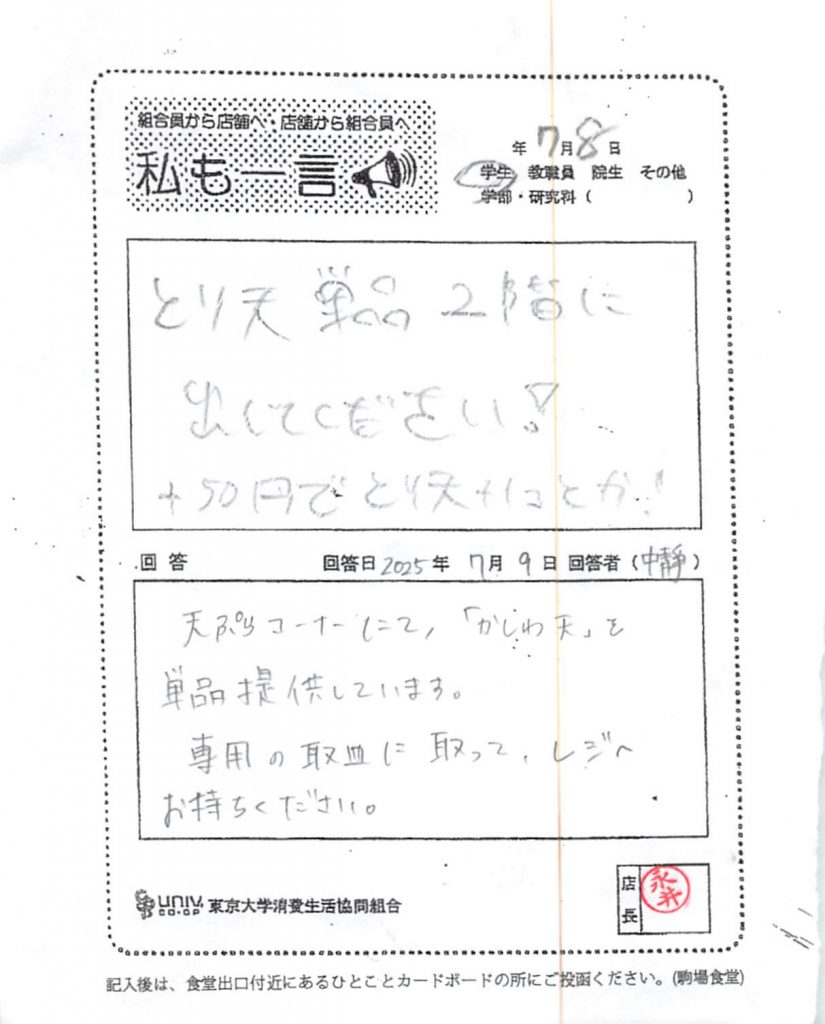 組合員から店舗へ・店舗から組合員へ
私も一言
年7月8日
学生 教職員 院生 その他
学部・研究科( )
とり天 単品 2階に
出してください!
+50円でとり天+1コとか!
回答 回答日2025年 7月 9日 回答者(中静)
天ぷらコーナーにて,「かしわ天」を
単品提供しています。
専用の取皿に取って、レジへ
お持ちください。
univ. CO-OP 東京大学消費生活協同組合
店長 永井
記入後は、食堂出口付近にあるひとことカードボードの所にご投函ください。(駒場食堂)